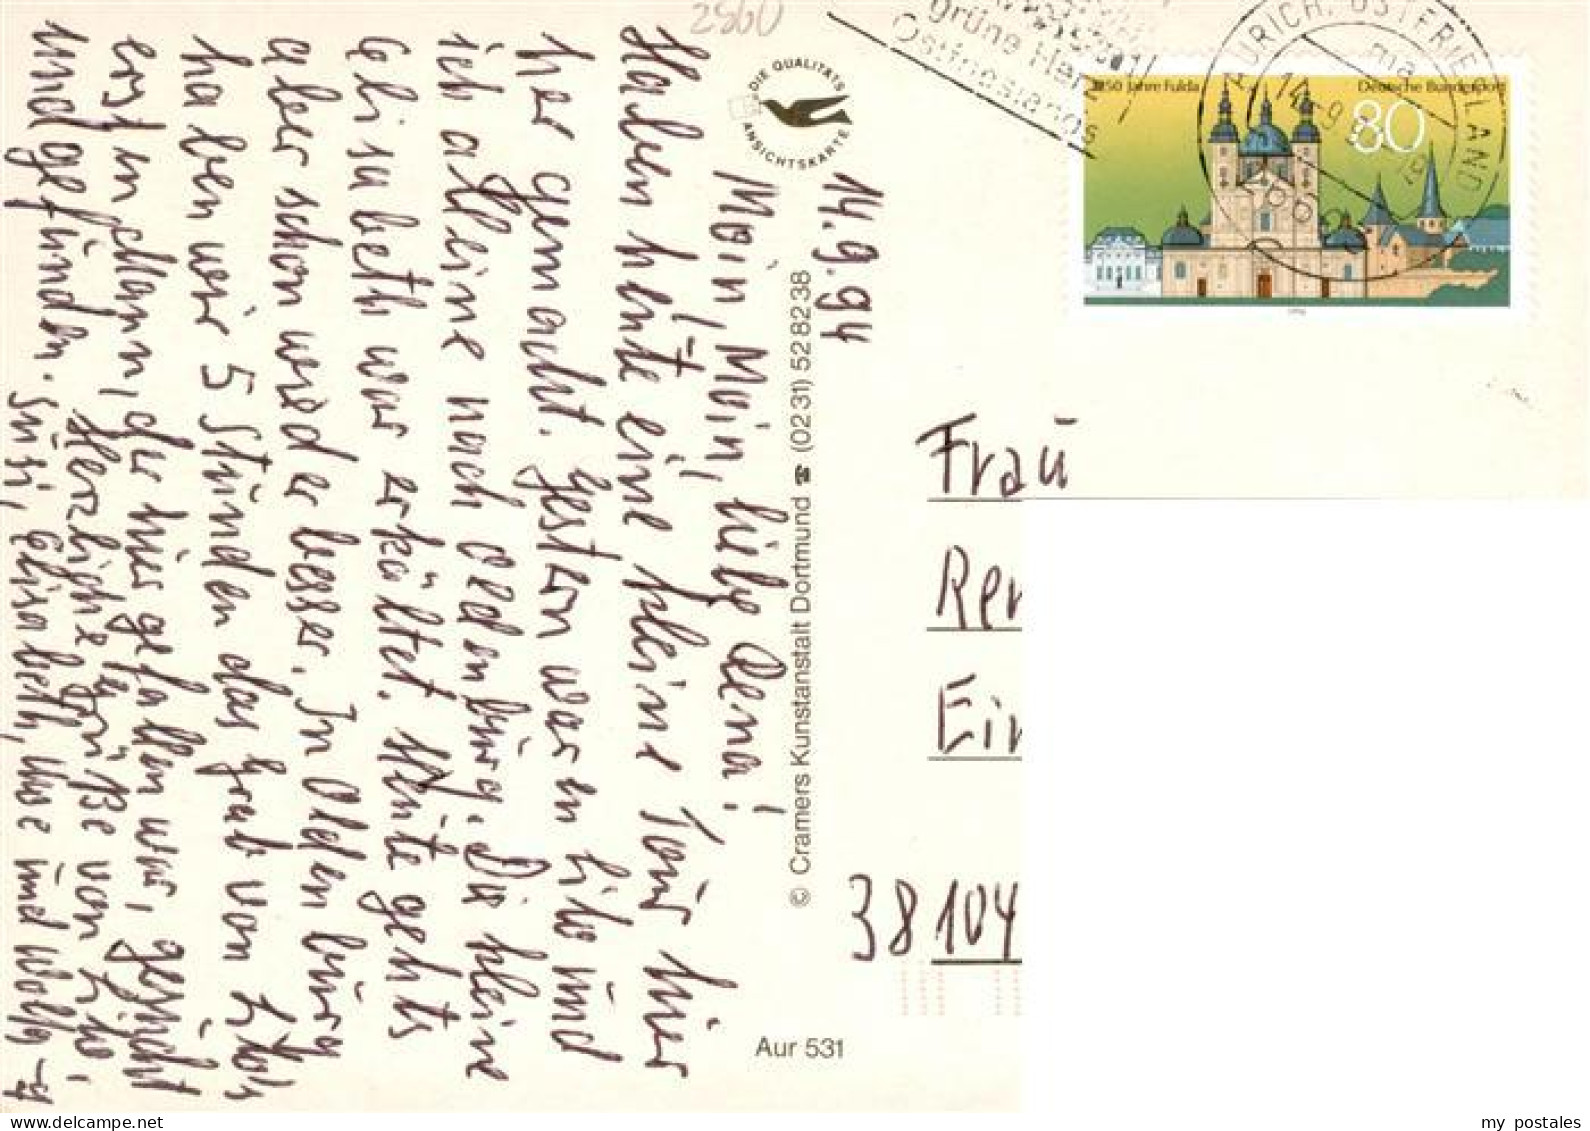 2860
grüne Herz
Ostfrieslands
AURICH, OSTFRIESLAND
14.-9.
1250 Jahre Fulda
Deutsche Bundespost
80
1994
DIE QUALITÄTS
ANSICHTSKARTE
14.9.94
Moin, Moin, liebe Rena!
Haben heute eine kleine Tour hier
her gemacht. Gestern waren Lilo und
ich alleine nach Oldenburg. Die kleine
Elisabeth war erkältet. Heute gehts
aber schon wieder besser. In Oldenburg
haben wir 5 Stunden das Grab von
erst im Mann, der hier gefallen war, gesucht
und gefunden.
Herzliche Grüße von Lilo,
Susi, Elisabeth, Uwe und
© Cramers Kunstanstalt Dortmund ☎ (0231) 528238
Aur 531
Frau
Ren
Ein
38104
my postales